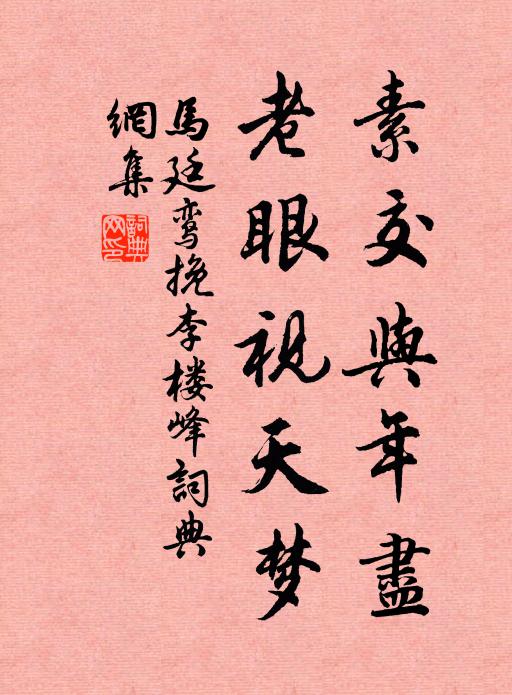 素交與年盡
老眼視天梦
馬廷鸾挽李楼峰詞典
網集
詞典
网印